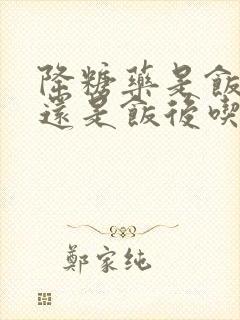 降糖藥是飯
還是飯後喫
鄭家純